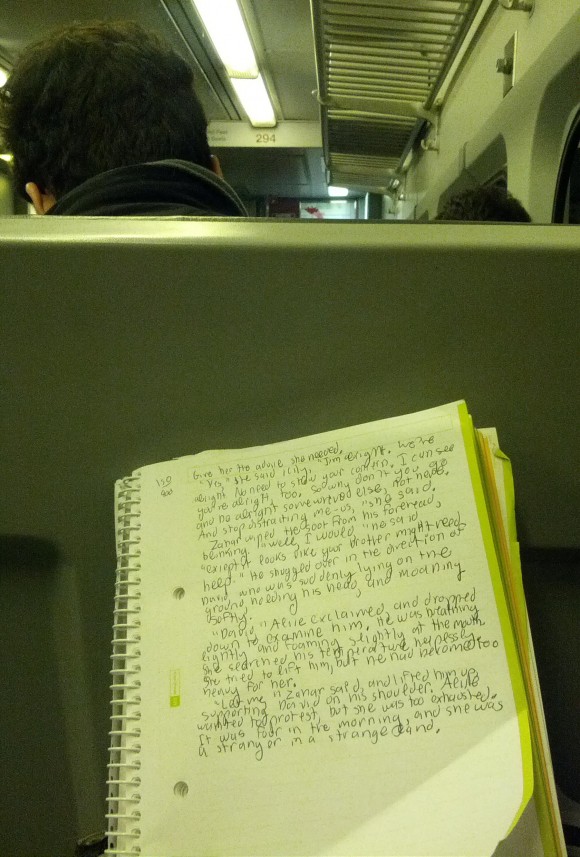 294
Give her the advice she needed.
"Yes," she said icily. "I'm alright. We're
alright. No need to show your concern. I can see
you're alright, too. So why don't you go
and be alright somewhere else, not here.
And stop distracting me-us," she said.
Zohar wiped the soot from his forehead,
blinking. "Well, I would," he said
"except it looks like your brother might need
help." He shugged over in the direction of
David who was suddenly lying on the
ground, holding his head, and moaning
softly.
"David," Allie exclaimed, and dropped
down to examine him. He was breathing
lightly and foaming slightly at the mouth
She searched his temperature helplessly.
She tried to lift him, but he had become too
heavy for her.
"Let me," Zohar said, and lifted him up
supporting David on his shoulder. Allie
wanted to protest, but she was too exhausted.
It was four in the morning, and she was
a stranger in a strange land.